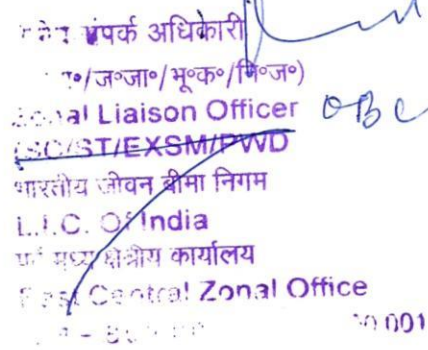 संपर्क अधिकारी
/ज॰जा॰/भू॰क॰/नि॰ज॰)
Zonal Liaison Officer OBC
(SC/ST/EXSM/PWD
भारतीय जीवन बीमा निगम
L.I.C. Of India
मध्य क्षेत्रीय कार्यालय
East Central Zonal Office
001